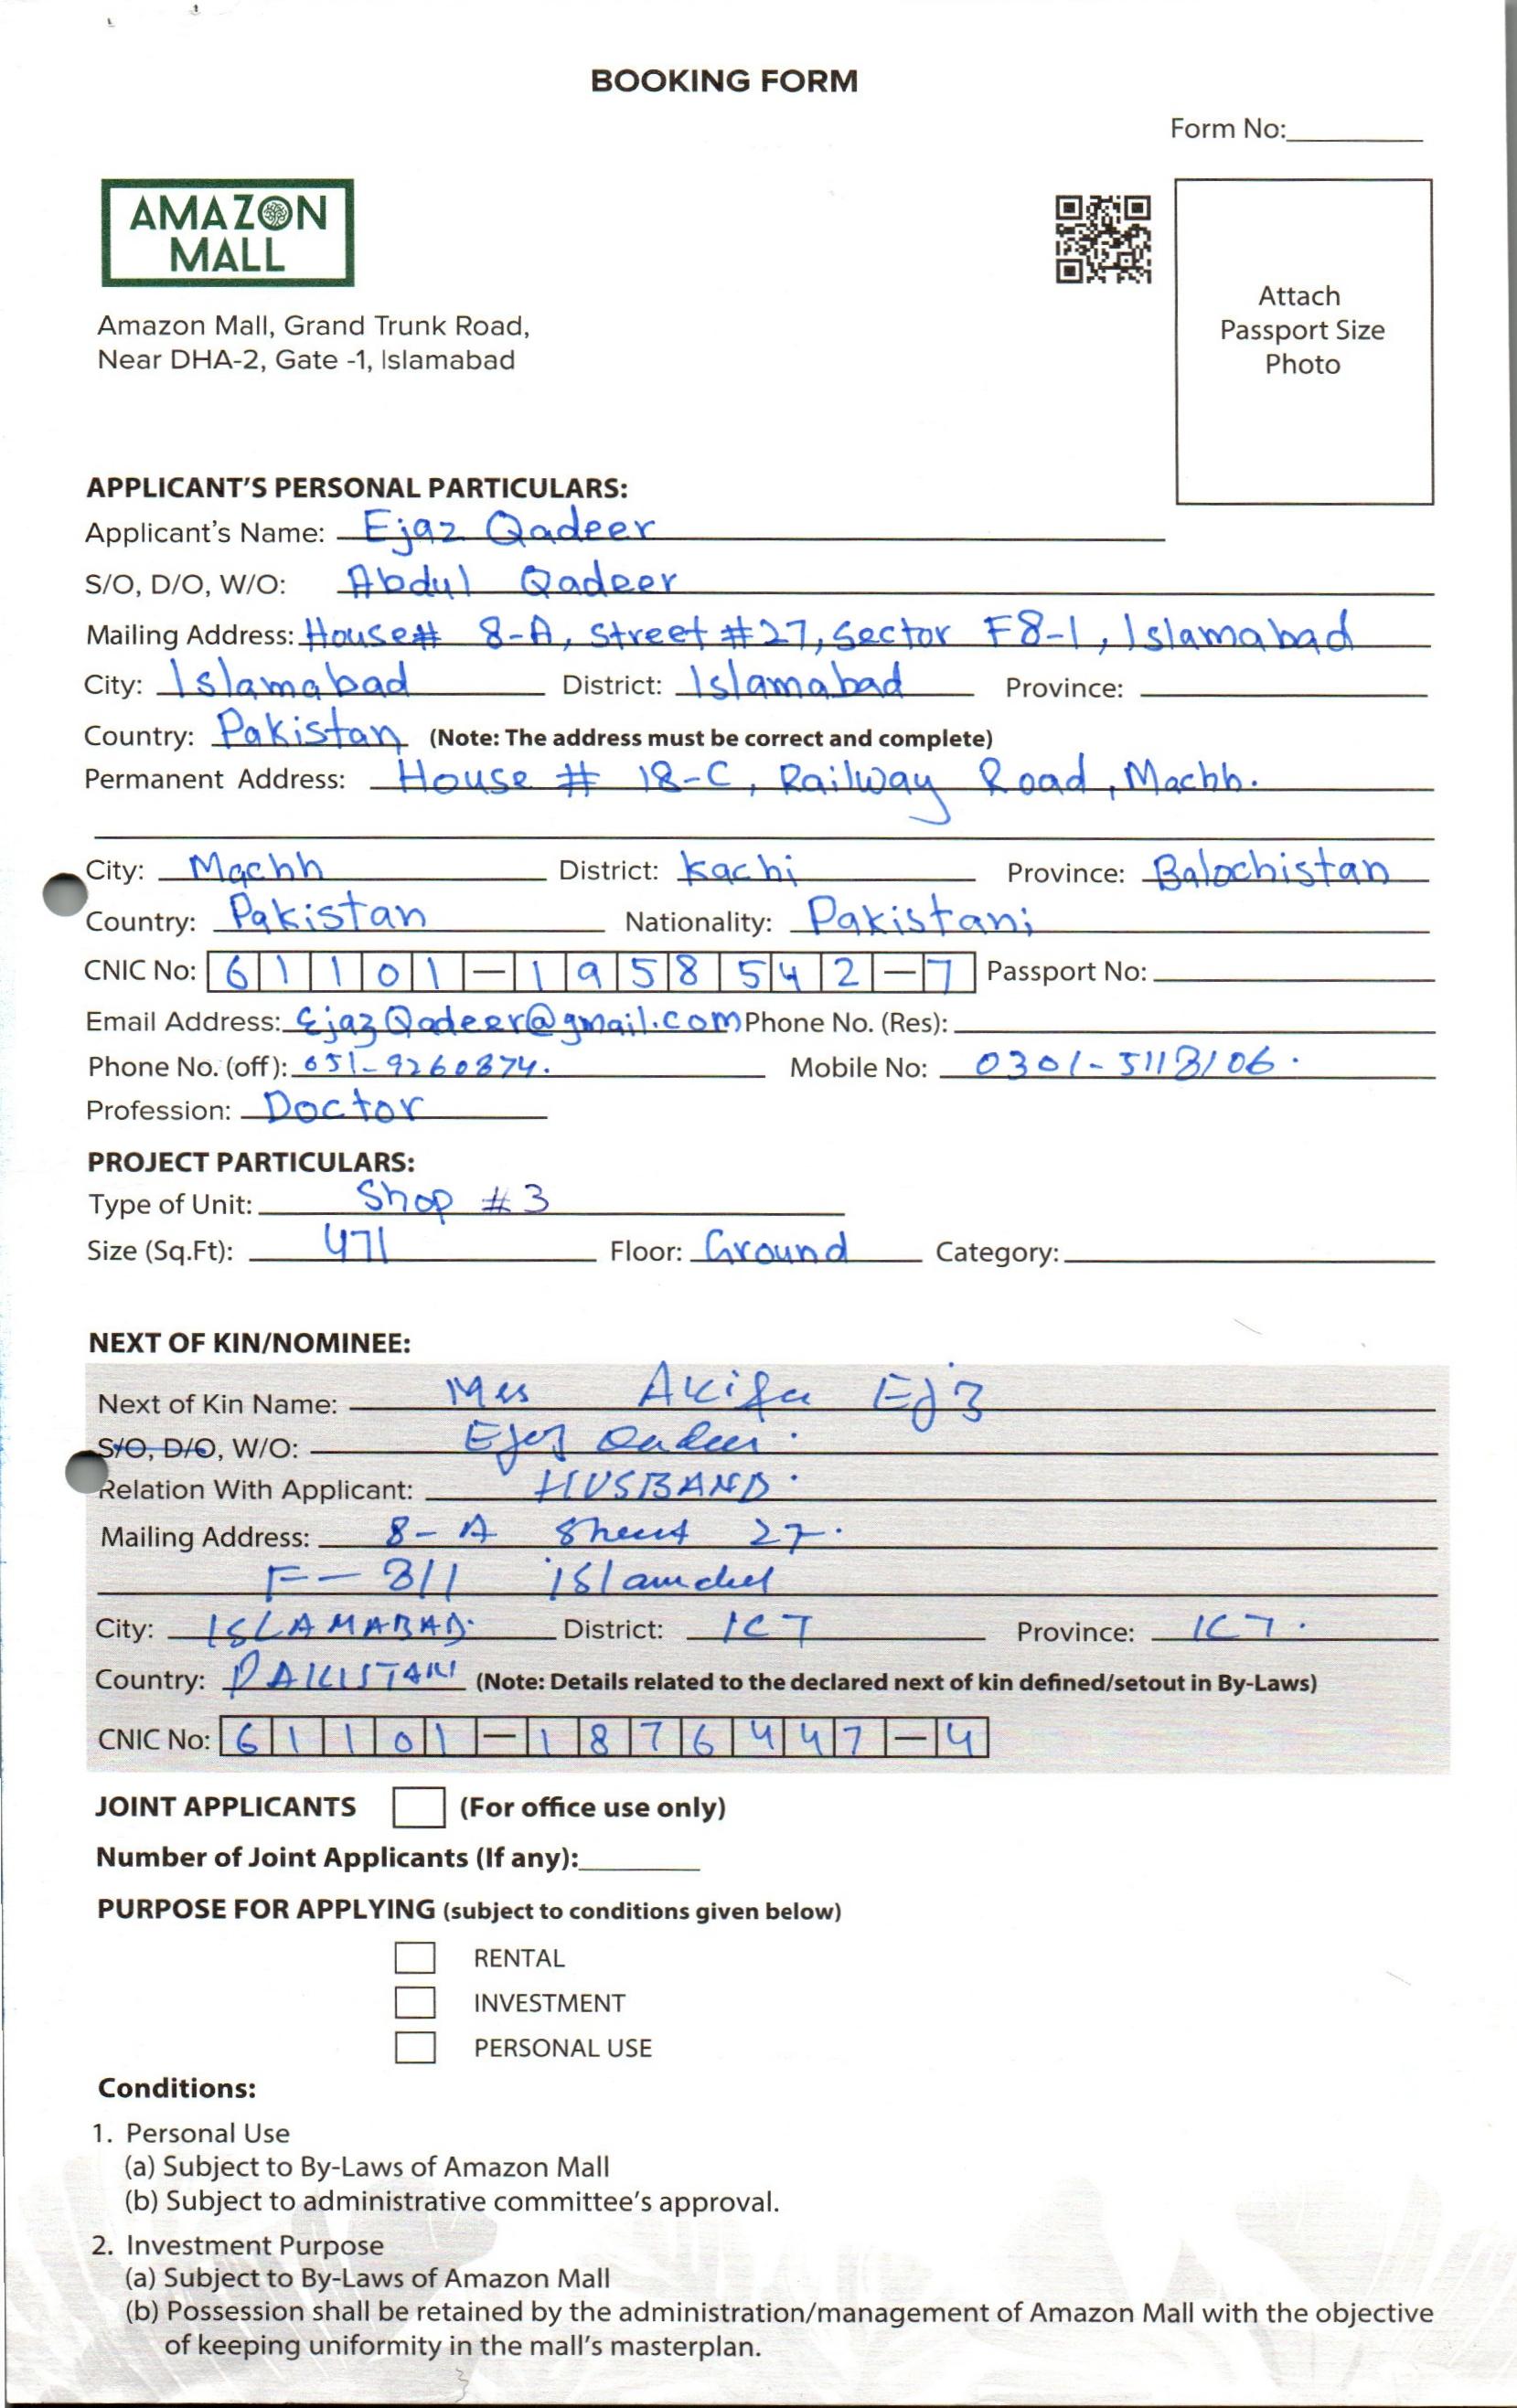 BOOKING FORM
Form No:
AMAZON
MALL
Attach
Passport Size
Photo
Amazon Mall, Grand Trunk Road,
Near DHA-2, Gate -1, Islamabad
APPLICANT'S PERSONAL PARTICULARS:
Applicant's Name: Ejaz Qadeer
S/O, D/O, W/O: Abdul Qadeer
Mailing Address: House# 8-A, Street #27, Sector F8-1, Islamabad
City: Islamabad District: Islamabad Province:
Country: Pakistan (Note: The address must be correct and complete)
Permanent Address: House # 18-C, Railway Road, Machh.
City: Machh District: Kachi Province: Balochistan
Country: Pakistan Nationality: Pakistani
CNIC No: 61101-1958542-7 Passport No:
Email Address: EjazQadeer@gmail.com Phone No. (Res):
Phone No. (off): 051-9260874. Mobile No:
Profession: Doctor
PROJECT PARTICULARS:
Type of Unit: Shop #3
Size (Sq.Ft): 471 Floor: Ground Category:
NEXT OF KIN/NOMINEE:
Next of Kin Name: Mrs Akifa
S/O, D/O, W/O: Ejaz Qadeer.
Relation With Applicant: HUSBAND.
Mailing Address: 8-A Street 27.
F-8/1 islamabad
City: ISLAMABAD. District: ICT Province: ICT.
Country: PAKISTAN (Note: Details related to the declared next of kin defined/setout in By-Laws)
CNIC No: 61101-1876447-4
JOINT APPLICANTS (For office use only)
Number of Joint Applicants (If any):
PURPOSE FOR APPLYING (subject to conditions given below)
RENTAL
INVESTMENT
PERSONAL USE
Conditions:
1. Personal Use
(a) Subject to By-Laws of Amazon Mall
(b) Subject to administrative committee's approval.
2. Investment Purpose
(a) Subject to By-Laws of Amazon Mall
(b) Possession shall be retained by the administration/management of Amazon Mall with the objective
of keeping uniformity in the mall's masterplan.